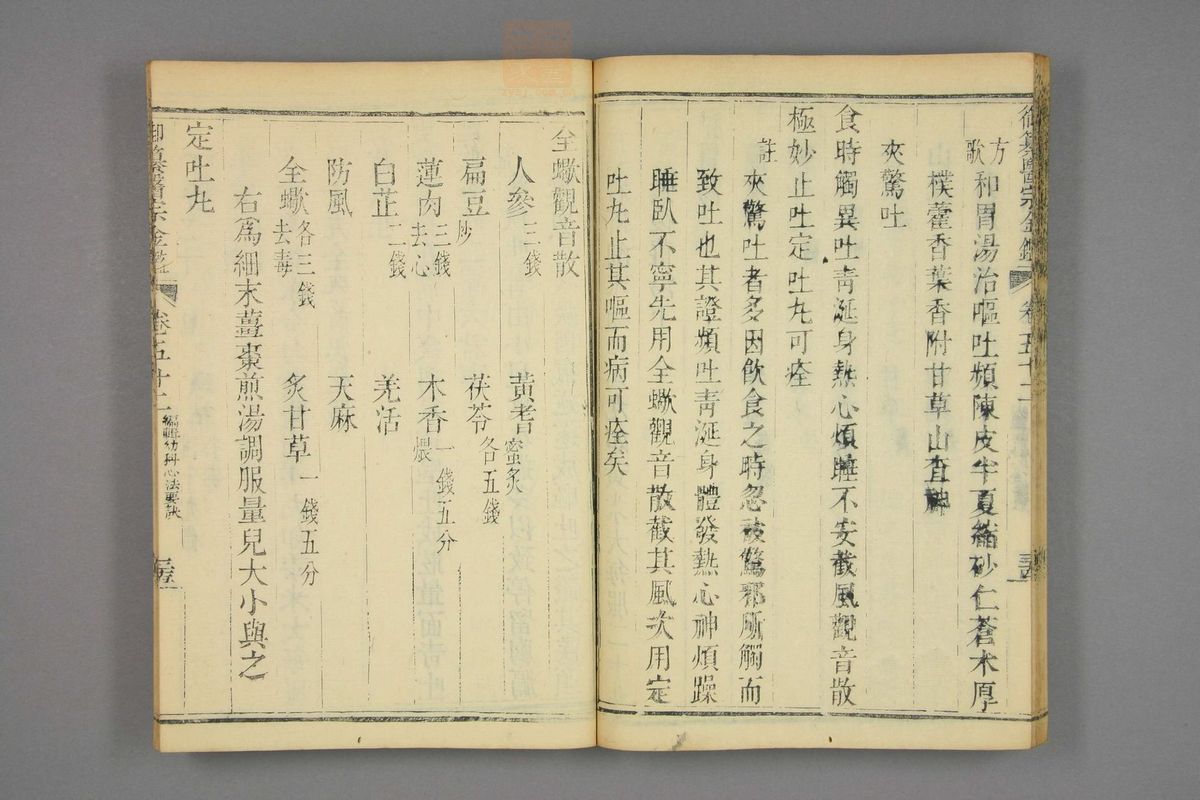 御纂醫宗金鑑 卷五十二
方歌 和胃湯治嘔吐頻陳皮半夏縮砂仁蒼朮厚
山樸藿香葉香附甘草山查神
夾驚吐
食時觸異吐青涎身熱心煩睡不安截風觀音散
極妙止吐定吐丸可痊
註 夾驚吐者多因飲食之時忽被驚邪所觸而
致吐也其證頻吐青涎身體發熱心神煩躁
睡臥不寧先用全蠍觀音散截其風次用定
吐丸止其嘔而病可痊矣
全蠍觀音散
人參三錢 黃耆蜜炙
扁豆炒 茯苓各五錢
蓮肉三錢去心 木香一錢五分煨
白芷二錢 羌活
防風 天麻
全蠍各三錢去毒 炙甘草一錢五分
右為細末薑棗煎湯調服量兒大小與之
定吐丸
御纂醫宗金鑑 卷五十二 編輯幼科心法要訣